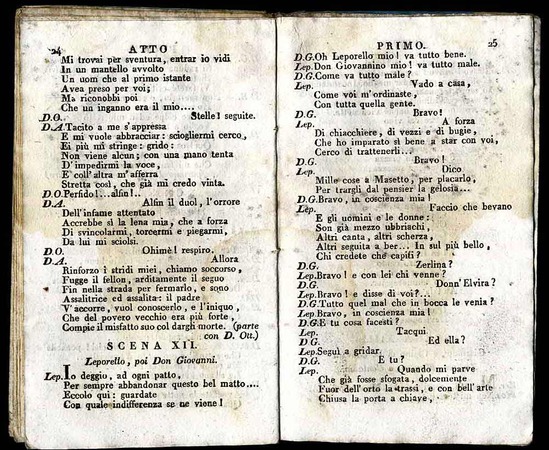 24 ATTO
Mi trovai per sventura, entrar io vidi
In un mantello avvolto
Un uom che al primo istante
Avea preso per voi;
Ma riconobbi poi
Che un inganno era il mio....
D.O. Stelle! seguite.
D.A. Tacito a me s'appressa
E mi vuole abbracciar: sciogliermi cerco,
Ei più mi stringe: grido:
Non viene alcun; con una mano tenta
D'impedirmi la voce,
E coll'altra m'afferra
Stretta così, che già mi credo vinta.
D.O. Perfido!...alfin!..
D.A. Alfin il duol, l'orrore
Dell'infame attentato
Accrebbe sì la lena mia, che a forza
Di svincolarmi, torcermi e piegarmi,
Da lui mi sciolsi.
D.O. Ohimè! respiro.
D.A. Allora
Rinforzo i stridi miei, chiamo soccorso,
Fugge il fellon, arditamente il seguo
Fin nella strada per fermarlo, e sono
Assalitrice ed assalita: il padre
V'accorre, vuol conoscerlo, e l'iniquo,
Che del povero vecchio era più forte,
Compie il misfatto suo col dargli morte. (parte
con D. Ott.)
SCENA XII.
Leporello, poi Don Giovanni.
Lep. Io deggio, ad ogni patto,
Per sempre abbandonar questo bel matto....
Eccolo qui: guardate
Con quale indifferenza se ne viene!
PRIMO. 25
D.G. Oh Leporello mio! va tutto bene.
Lep. Don Giovannino mio! va tutto male.
D.G. Come va tutto male?
Lep. Vado a casa,
Come voi m'ordinaste,
Con tutta quella gente.
D.G. Bravo!
Lep. A forza
Di chiacchiere, di vezzi e di bugie,
Che ho imparato sì bene a star con voi,
Cerco di trattenerli...
D.G. Bravo!
Lep. Dico
Mille cose a Masetto, per placarlo,
Per trargli dal pensier la gelosia...
D.G. Bravo, in coscienza mia!
Lep. Faccio che bevano
E gli uomini e le donne:
Son già mezzo ubbriachi,
Altri canta, altri scherza,
Altri seguita a ber... In sul più bello,
Chi credete che capiti?
D.G. Zerlina?
Lep. Bravo! e con lei chi venne?
D.G. Donn' Elvira?
Lep. Bravo! e disse di voi?...
D.G. Tutto quel mal che in bocca le venia?
Lep. Bravo, in coscienza mia!
D.G. E tu cosa facesti?
Lep. Tacqui.
D.G. Ed ella?
Lep. Seguì a gridar.
D.G. E tu?
Lep. Quando mi parve
Che già fosse sfogata, dolcemente
Fuor dell'orto la trassi, e con bell'arte
Chiusa la porta a chiave,